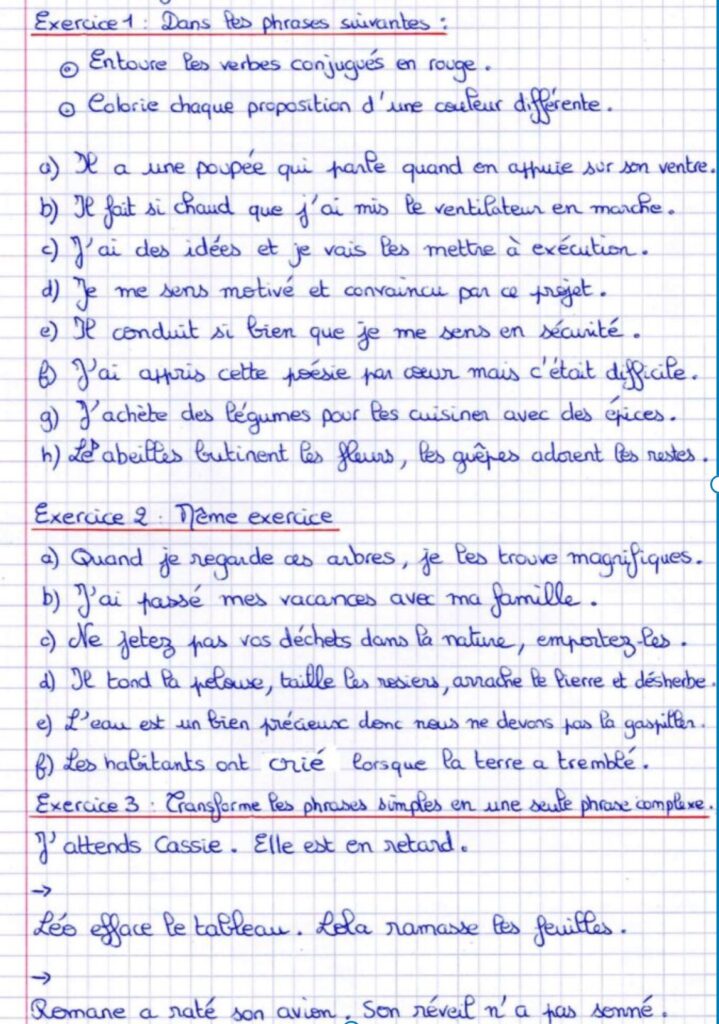 Exercice 1 : Dans les phrases suivantes :
⊙ Entoure les verbes conjugués en rouge.
⊙ Colorie chaque proposition d'une couleur différente.
a) Il a une poupée qui parle quand on appuie sur son ventre.
b) Il fait si chaud que j'ai mis le ventilateur en marche.
c) J'ai des idées et je vais les mettre à exécution.
d) Je me sens motivé et convaincu par ce projet.
e) Il conduit si bien que je me sens en sécurité.
f) J'ai appris cette poésie par cœur mais c'était difficile.
g) J'achète des légumes pour les cuisiner avec des épices.
h) Les abeilles butinent les fleurs, les guêpes adorent les restes.
Exercice 2 : Même exercice
a) Quand je regarde ces arbres, je les trouve magnifiques.
b) J'ai passé mes vacances avec ma famille.
c) Ne jetez pas vos déchets dans la nature, emportez-les.
d) Il tond la pelouse, taille les rosiers, arrache le lierre et désherbe.
e) L'eau est un bien précieux donc nous ne devons pas la gaspiller.
f) Les habitants ont crié lorsque la terre a tremblé.
Exercice 3 : Transforme les phrases simples en une seule phrase complexe.
J'attends Cassie. Elle est en retard.
→
Léo efface le tableau. Lola ramasse les feuilles.
→
Romane a raté son avion. Son réveil n'a pas sonné.